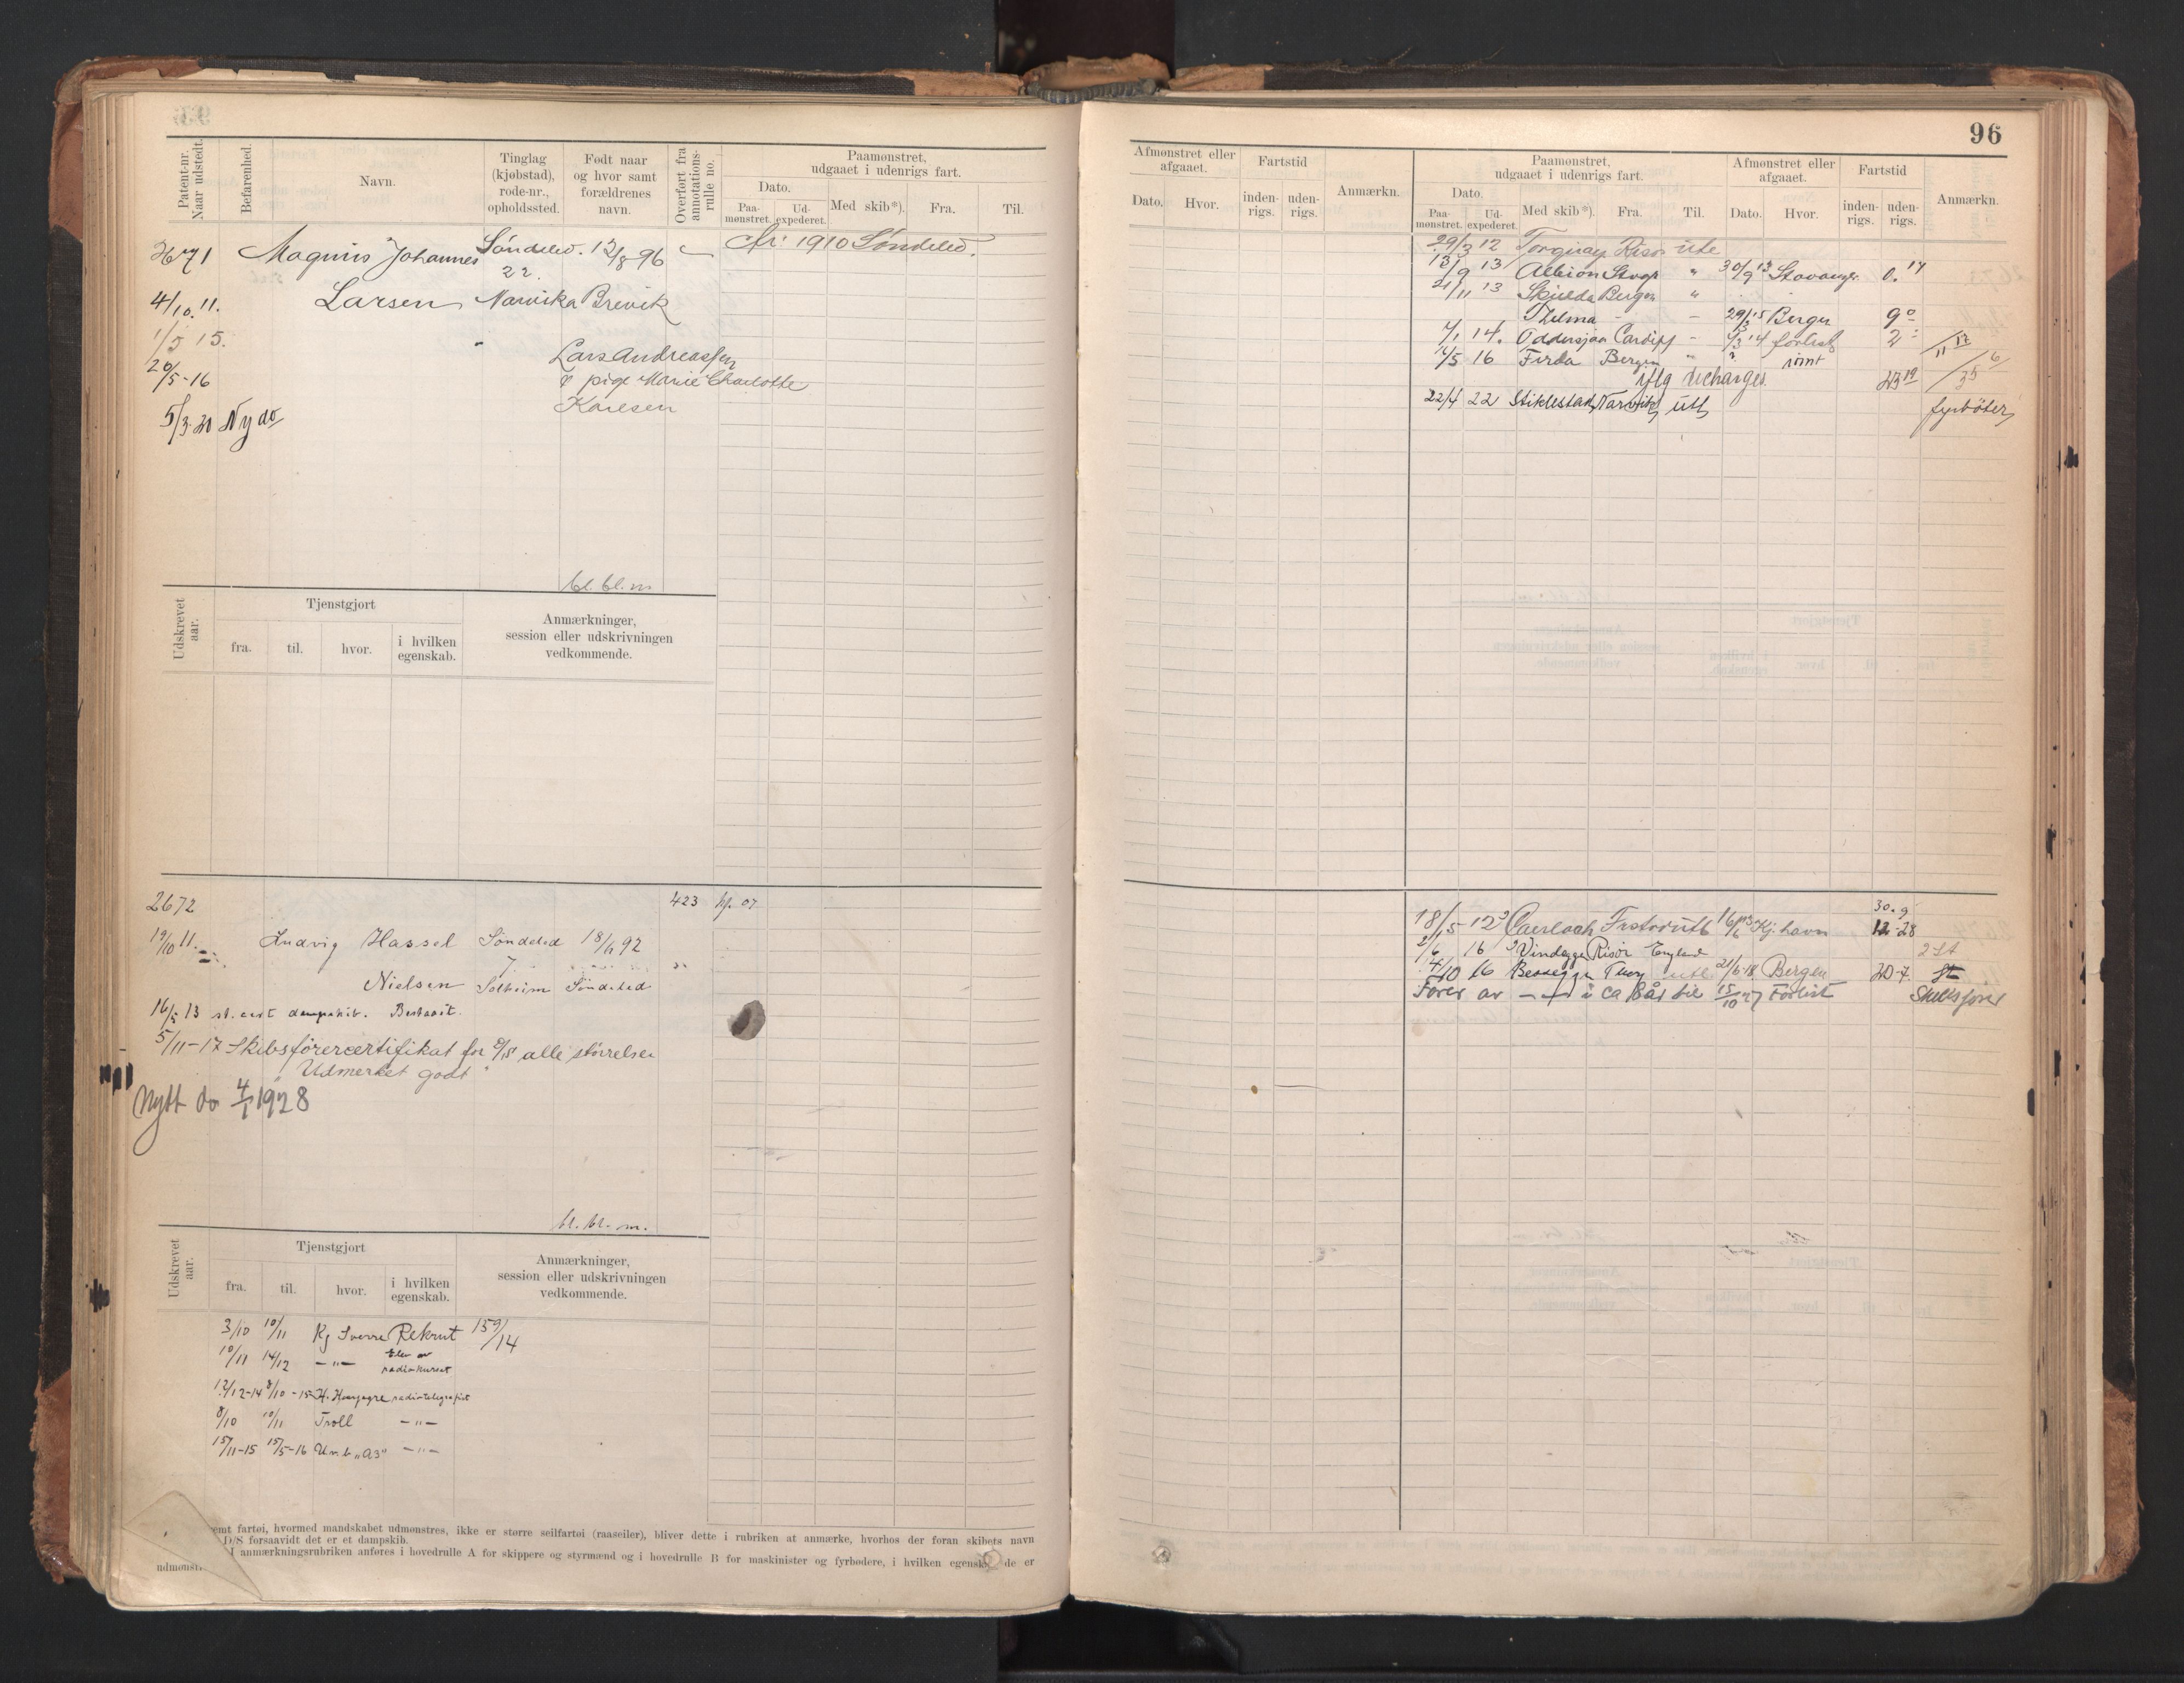 96
Patent-nr. Naar udstedt.
Befarenhed.
Navn.
Tinglag (kjøbstad), rode-nr., opholdssted.
Født naar og hvor samt forældrenes navn.
Overført fra annotations-rulle no.
Paamønstret, udgaaet i udenrigs fart.
Dato.
Paa-mønstret.
Ud-expederet.
Med skib*).
Fra.
Til.
2671 Magnus Johannes Søndeled. 13/8 96 Kr: 1910 Søndeled.
22.
4/10. 11. Larsen Narvika Brevik
1/5 15.
Lars Andreassen
20/5-16 & pige Marie Charlotte
Karlsen
5/3 20 Ny do
bl. bl. m.
Udskrevet aar.
Tjenstgjort
fra. til. hvor. i hvilken egenskab.
Anmærkninger, session eller udskrivningen vedkommende.
2672 423 kr. 07
19/10 11. Ludvig Hassel Søndeled 18/11 92
7
Nielsen Solheim Søndeled
16/5 13 st. cert dampskib. Bestaaet.
5/11-17 Skibsførercertifikat for D/S alle størrelser
"Udmerket godt"
Nytt do 4/1 1928
bl. bl. m.
Udskrevet aar.
Tjenstgjort
fra. til. hvor. i hvilken egenskab.
Anmærkninger, session eller udskrivningen vedkommende.
3/10 10/11 Kg Sverre Rekrut 159/14
10/11 14/12 -"- Elev av radiokurset
12/12-14 8/10-15 radiotelegrafist
8/10 10/11 Troll -"-
15/11-15 15/5-16 Un.b "A3" -"-
emt fartøi, hvormed mandskabet udmønstres, ikke er større seilfartøi (raaseiler), bliver dette i rubriken at anmærke, hvorhos der foran skibets navn
D/S forsaavidt det er et dampskib.
I anmærkningsrubriken anføres i hovedrulle A for skippere og styrmænd og i hovedrulle B for maskinister og fyrbødere, i hvilken egensk de er
udmønstr
Afmønstret eller afgaaet.
Dato. Hvor.
Fartstid
inden-rigs. uden-rigs.
Anmærkn.
Paamønstret, udgaaet i udenrigs fart.
Dato.
Paa-mønstret. Ud-expederet.
Med skib*). Fra. Til.
Afmønstret eller afgaaet.
Dato. Hvor.
Fartstid
inden-rigs. uden-rigs.
Anmærkn.
29/3 12 Torquay Risør ute
13/9 13 Albion Stvgr " 30/9 13 Stavanger 0. 17
21/11 13 Skjelda Bergen "
Thelma - - 29/3 15 Bergen 9 0
7/1 14. Oddersjaa Cardiff - 14 forlist 2
14/5 16 Firda Bergen " ? rømt
iflg discharges 23 19
22/4 22 Stiklestad Narvik utl fyrbøter
30. 9
18/5 12 Caerloch Frstad utl 16/6 13 Kj.havn 12-28
2/6 16 Vindeggen Risør England 2 St
4/10 16 Besseggen Tbrg utl 21/6 18 Bergen 20-7 St
Fører av -"- i ca 8 år til 15/10 27 Forlist Skibsfører